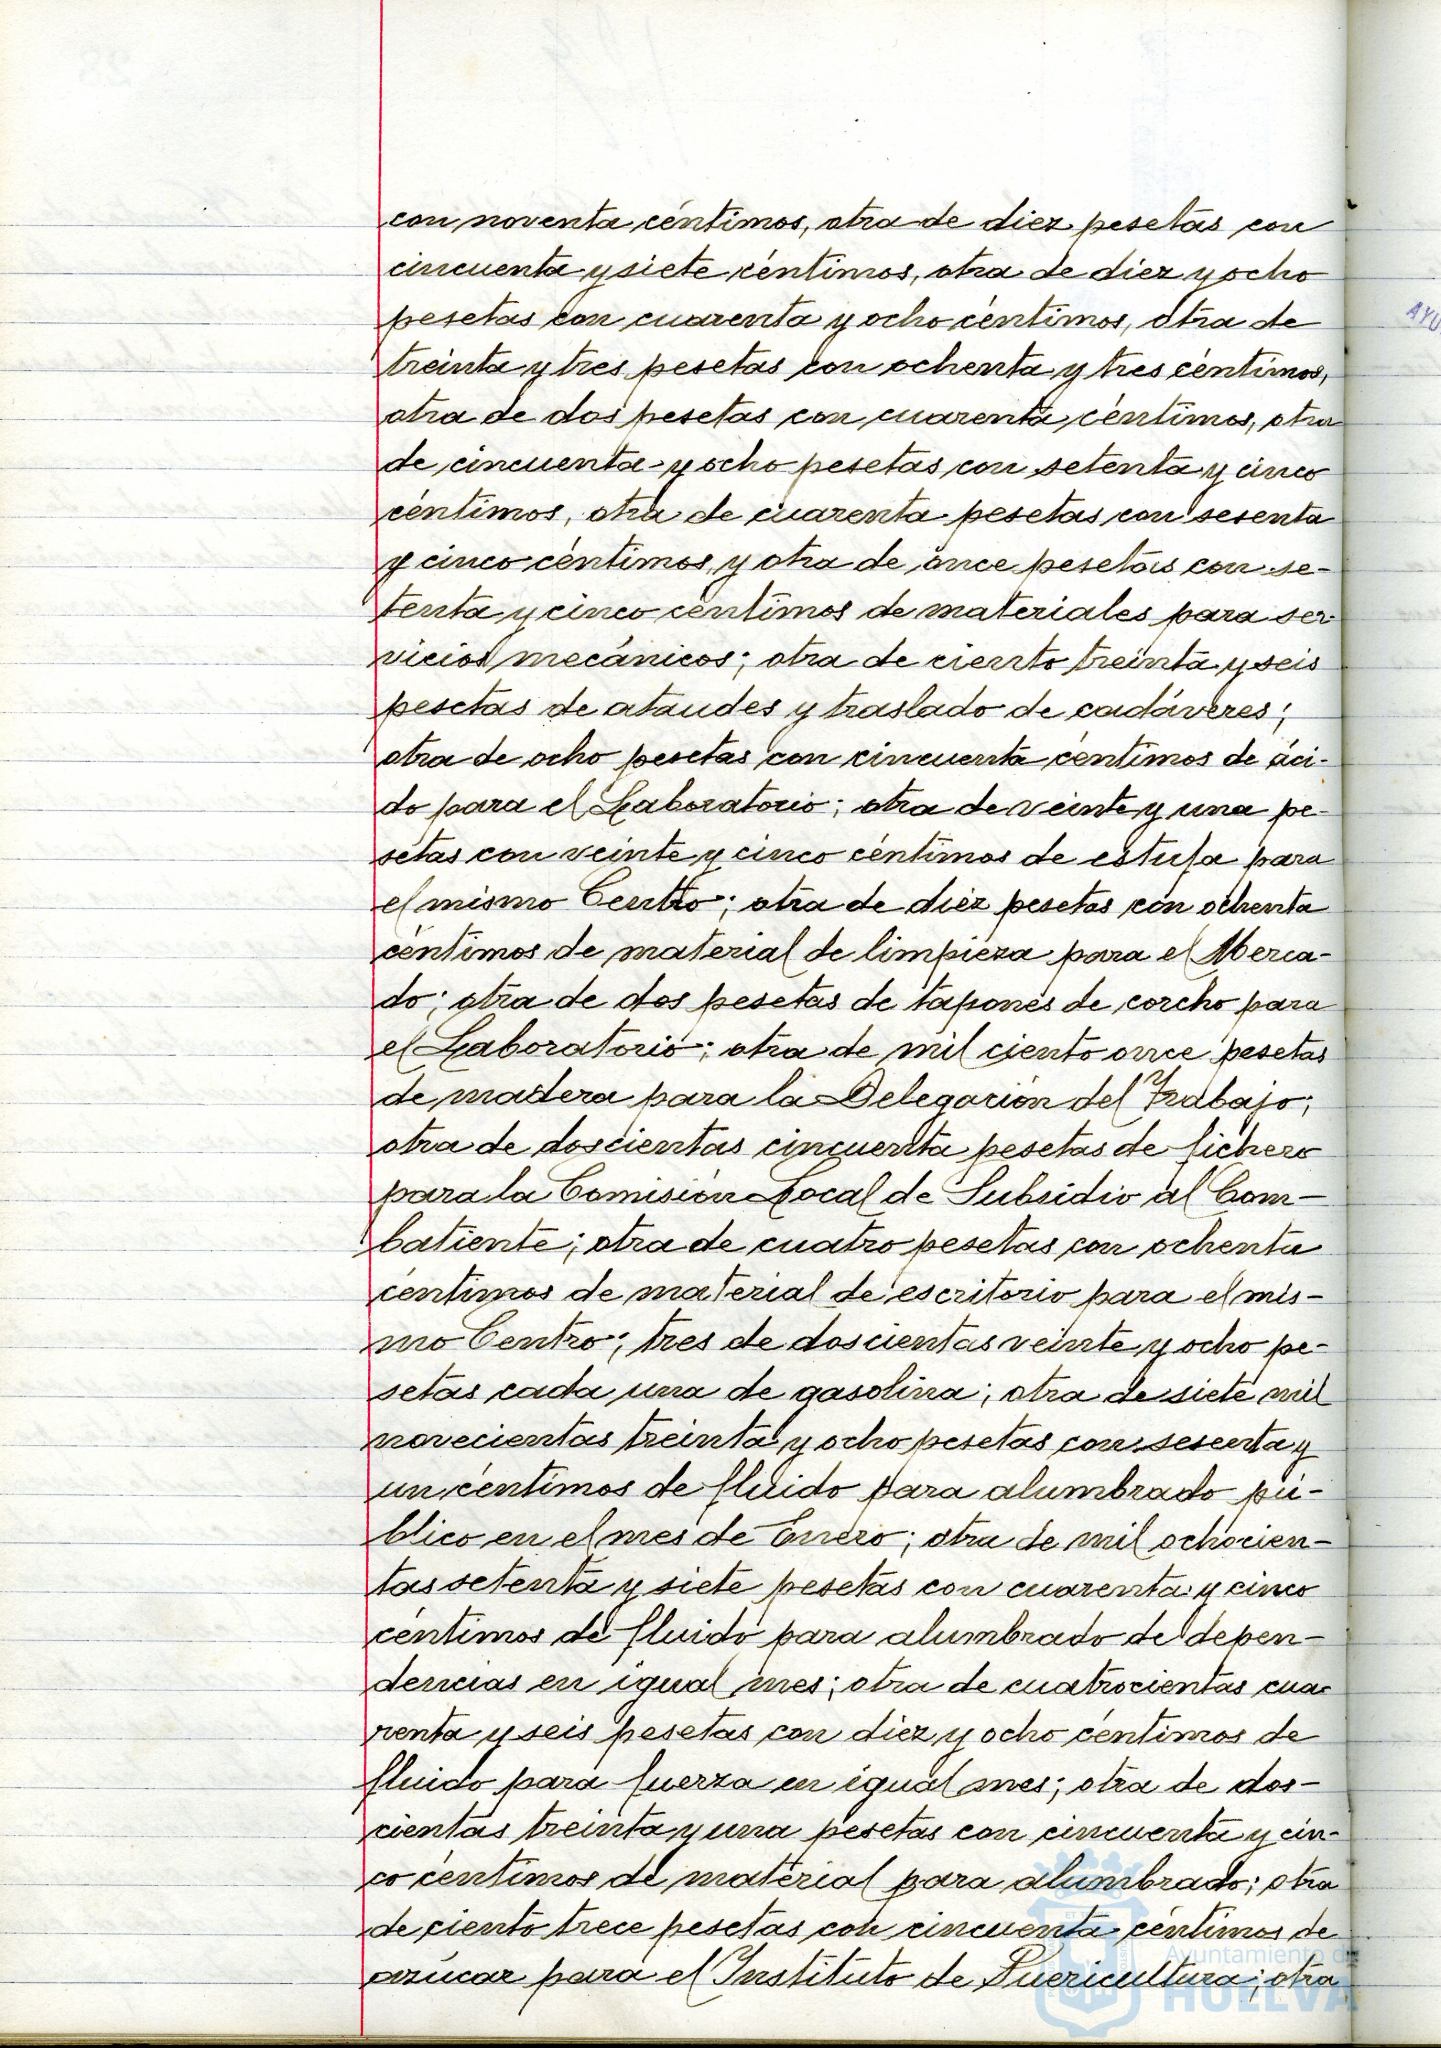 con noventa céntimos, otra de diez pesetas con
cincuenta y siete céntimos, otra de diez y ocho
pesetas con cuarenta y ocho céntimos, otra de
treinta y tres pesetas con ochenta y tres céntimos,
otra de dos pesetas con cuarenta céntimos, otra
de cincuenta y ocho pesetas con setenta y cinco
céntimos, otra de cuarenta pesetas con sesenta
y cinco céntimos, y otra de once pesetas con se-
tenta y cinco céntimos de materiales para ser-
vicios mecánicos; otra de ciento treinta y seis
pesetas de ataudes y traslado de cadáveres;
otra de ocho pesetas con cincuenta céntimos de áci-
do para el Laboratorio; otra de veinte y una pe-
setas con veinte y cinco céntimos de estufa para
el mismo Centro; otra de diez pesetas con ochenta
céntimos de material de limpieza para el Merca-
do; otra de dos pesetas de tapones de corcho para
el Laboratorio; otra de mil ciento once pesetas
de madera para la Delegación del Trabajo;
otra de doscientas cincuenta pesetas de fichero
para la Comisión Local de Subsidio al Com-
batiente; otra de cuatro pesetas con ochenta
céntimos de material de escritorio para el mis-
mo Centro; tres de doscientas veinte y ocho pe-
setas cada una de gasolina; otra de siete mil
novecientas treinta y ocho pesetas con sesenta y
un céntimos de fluido para alumbrado pú-
blico en el mes de Enero; otra de mil ochocien-
tas setenta y siete pesetas con cuarenta y cinco
céntimos de fluido para alumbrado de depen-
dencias en igual mes; otra de cuatrocientas cua-
renta y seis pesetas con diez y ocho céntimos de
fluido para fuerza en igual mes; otra de dos-
cientas treinta y una pesetas con cincuenta y cin-
co céntimos de material para alumbrado; otra
de ciento trece pesetas con cincuenta céntimos de
azúcar para el Instituto de Puericultura; otra
AYU
Ayuntamiento de
HUELVA